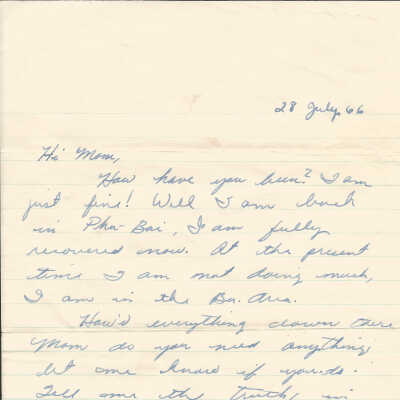 28 July, 66
Hi Mom,
How have you been? I am
just fine! Well I am back
in Phu-Bai, I am fully
recovered now. At the present
time I am not doing much,
I am in the Bn. Area.
How'd everything down there
Mom do you need anything
let me know if you do.
Tell me the truth, is